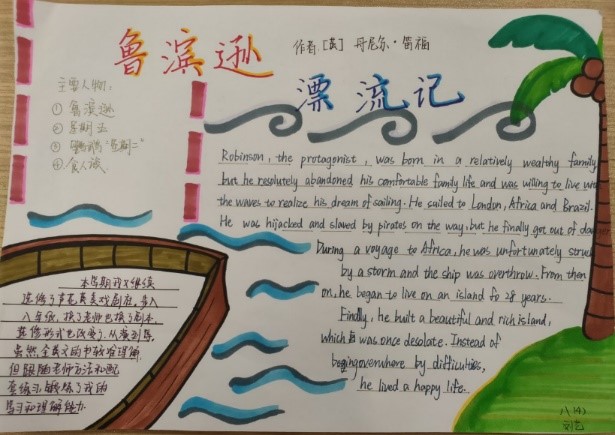 鲁滨逊
作者:[英]丹尼尔·笛福
漂流记
主要人物:
① 鲁滨逊
② 星期五
③ 鹦鹉"星期二"
④ 食人族
Robinson, the protagonist, was born in a relatively wealthy family
but he resolutely abandoned his comfortable family life and was willing to live
the waves to realize his dream of sailing. He sailed to London, Africa and Brazil.
He was hijacked and slaved by pirates on the way, but he finally got out of
During a voyage to Africa, he was unfortunately
by a storm and the ship was overthrow. From then
on, he began to live on an island fo 28 years.
Finally, he built a beautiful and rich island,
which was once desolate. Instead of
being overwhere by difficulties,
he lived a happy life.
本学期我又继续
选修了英美戏剧,步入
八年级,换了老师也换了剧本,
其修形式也改变了,从演到
虽然全英文的书较难理解,
但跟随老师方法和
锻炼了我的
学习和理解能力.
八(4)